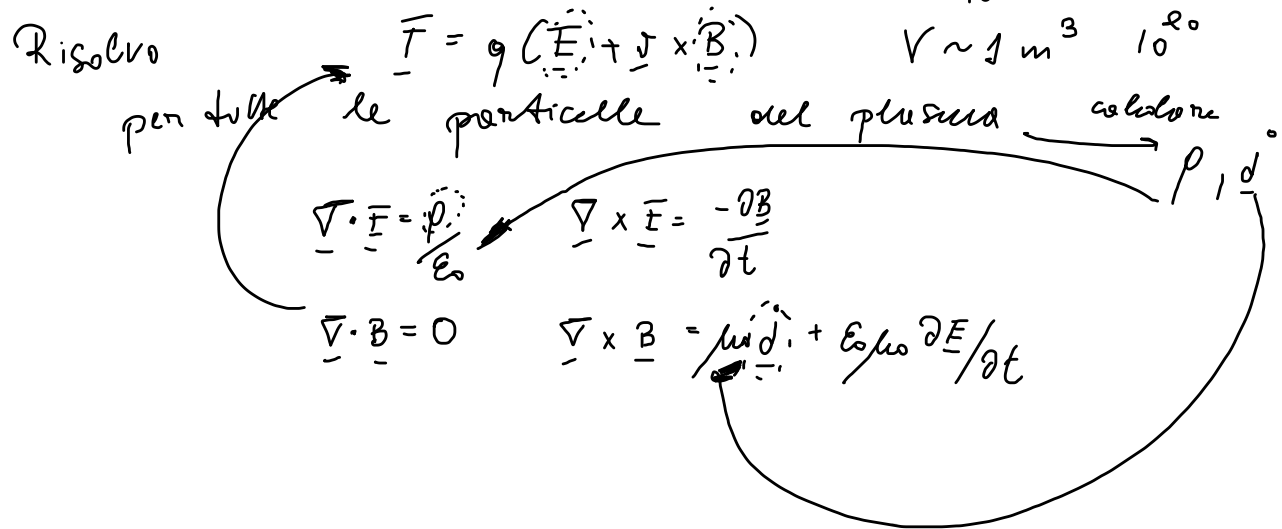 Risolvo F = q (E + v × B) V ~ 1 m³ 10²⁰
per tutte le particelle del plasma calcolare ρ, J
∇ · E = ρ/ε₀ ∇ × E = -∂B/∂t
∇ · B = 0 ∇ × B = μ₀ J + ε₀μ₀ ∂E/∂t